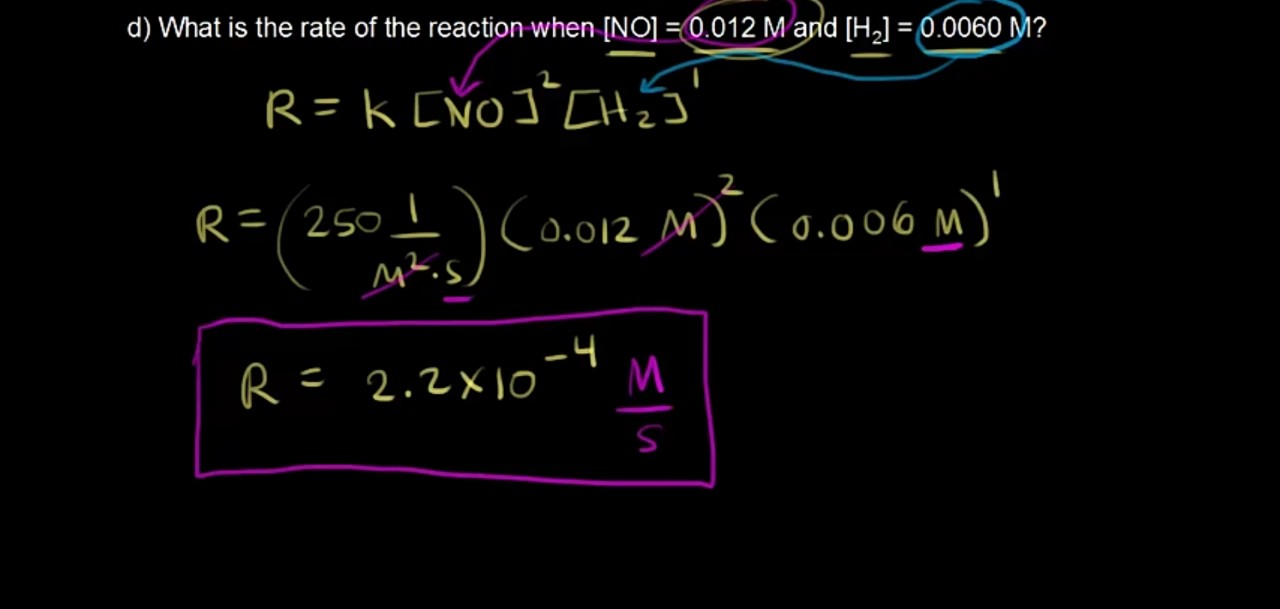 d) What is the rate of the reaction when [NO] = 0.012 M and [H₂] = 0.0060 M?
R = k [NO]² [H₂]¹
R = (250 1/M²·s) (0.012 M)² (0.006 M)¹
R = 2.2×10⁻⁴ M/s